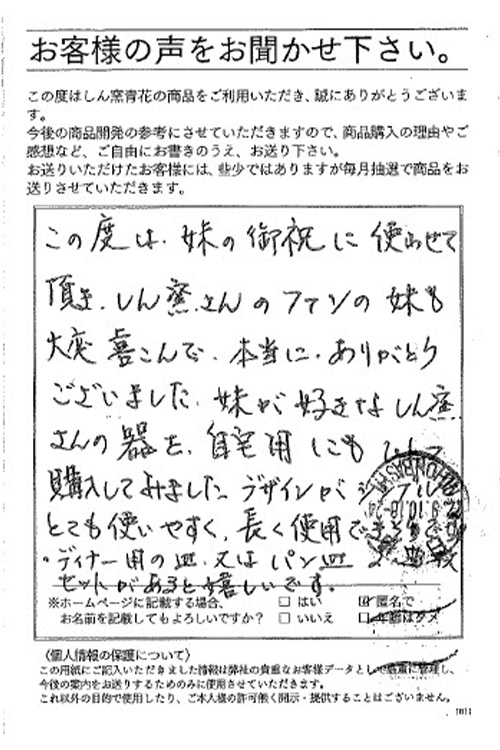 お客様の声をお聞かせ下さい。
この度はしん窯青花の商品をご利用いただき、誠にありがとうございま
す。
今後の商品開発の参考にさせていただきますので、商品購入の理由やご
感想など、ご自由にお書きのうえ、お送り下さい。
お送りいただけたお客様には、些少ではありますが毎月抽選で商品をお
送りさせていただきます。
この度は、妹の御祝に使わせて
頂き、しん窯さんのファンの妹も
大変喜こんで、本当に、ありがとう
ございました。妹が好きなしん窯
さんの器を、自宅用にも
購入してみました。デザインがシンプル
とても使いやすく、長く使用できそうです
・ディナー用の皿、又はパン皿
セットがあると嬉しいです。
※ホームページに記載する場合、 □ はい ☑ 匿名で
お名前を記載してもよろしいですか? □ いいえ □ 年齢はダメ
〈個人情報の保護について〉
この用紙にご記入いただきました情報は弊社の貴重なお客様データとして厳重に管理し、
今後の案内をお送りするためのみに使用させていただきます。
これ以外の目的で使用したり、ご本人様の許可無く開示・提供することはございません。